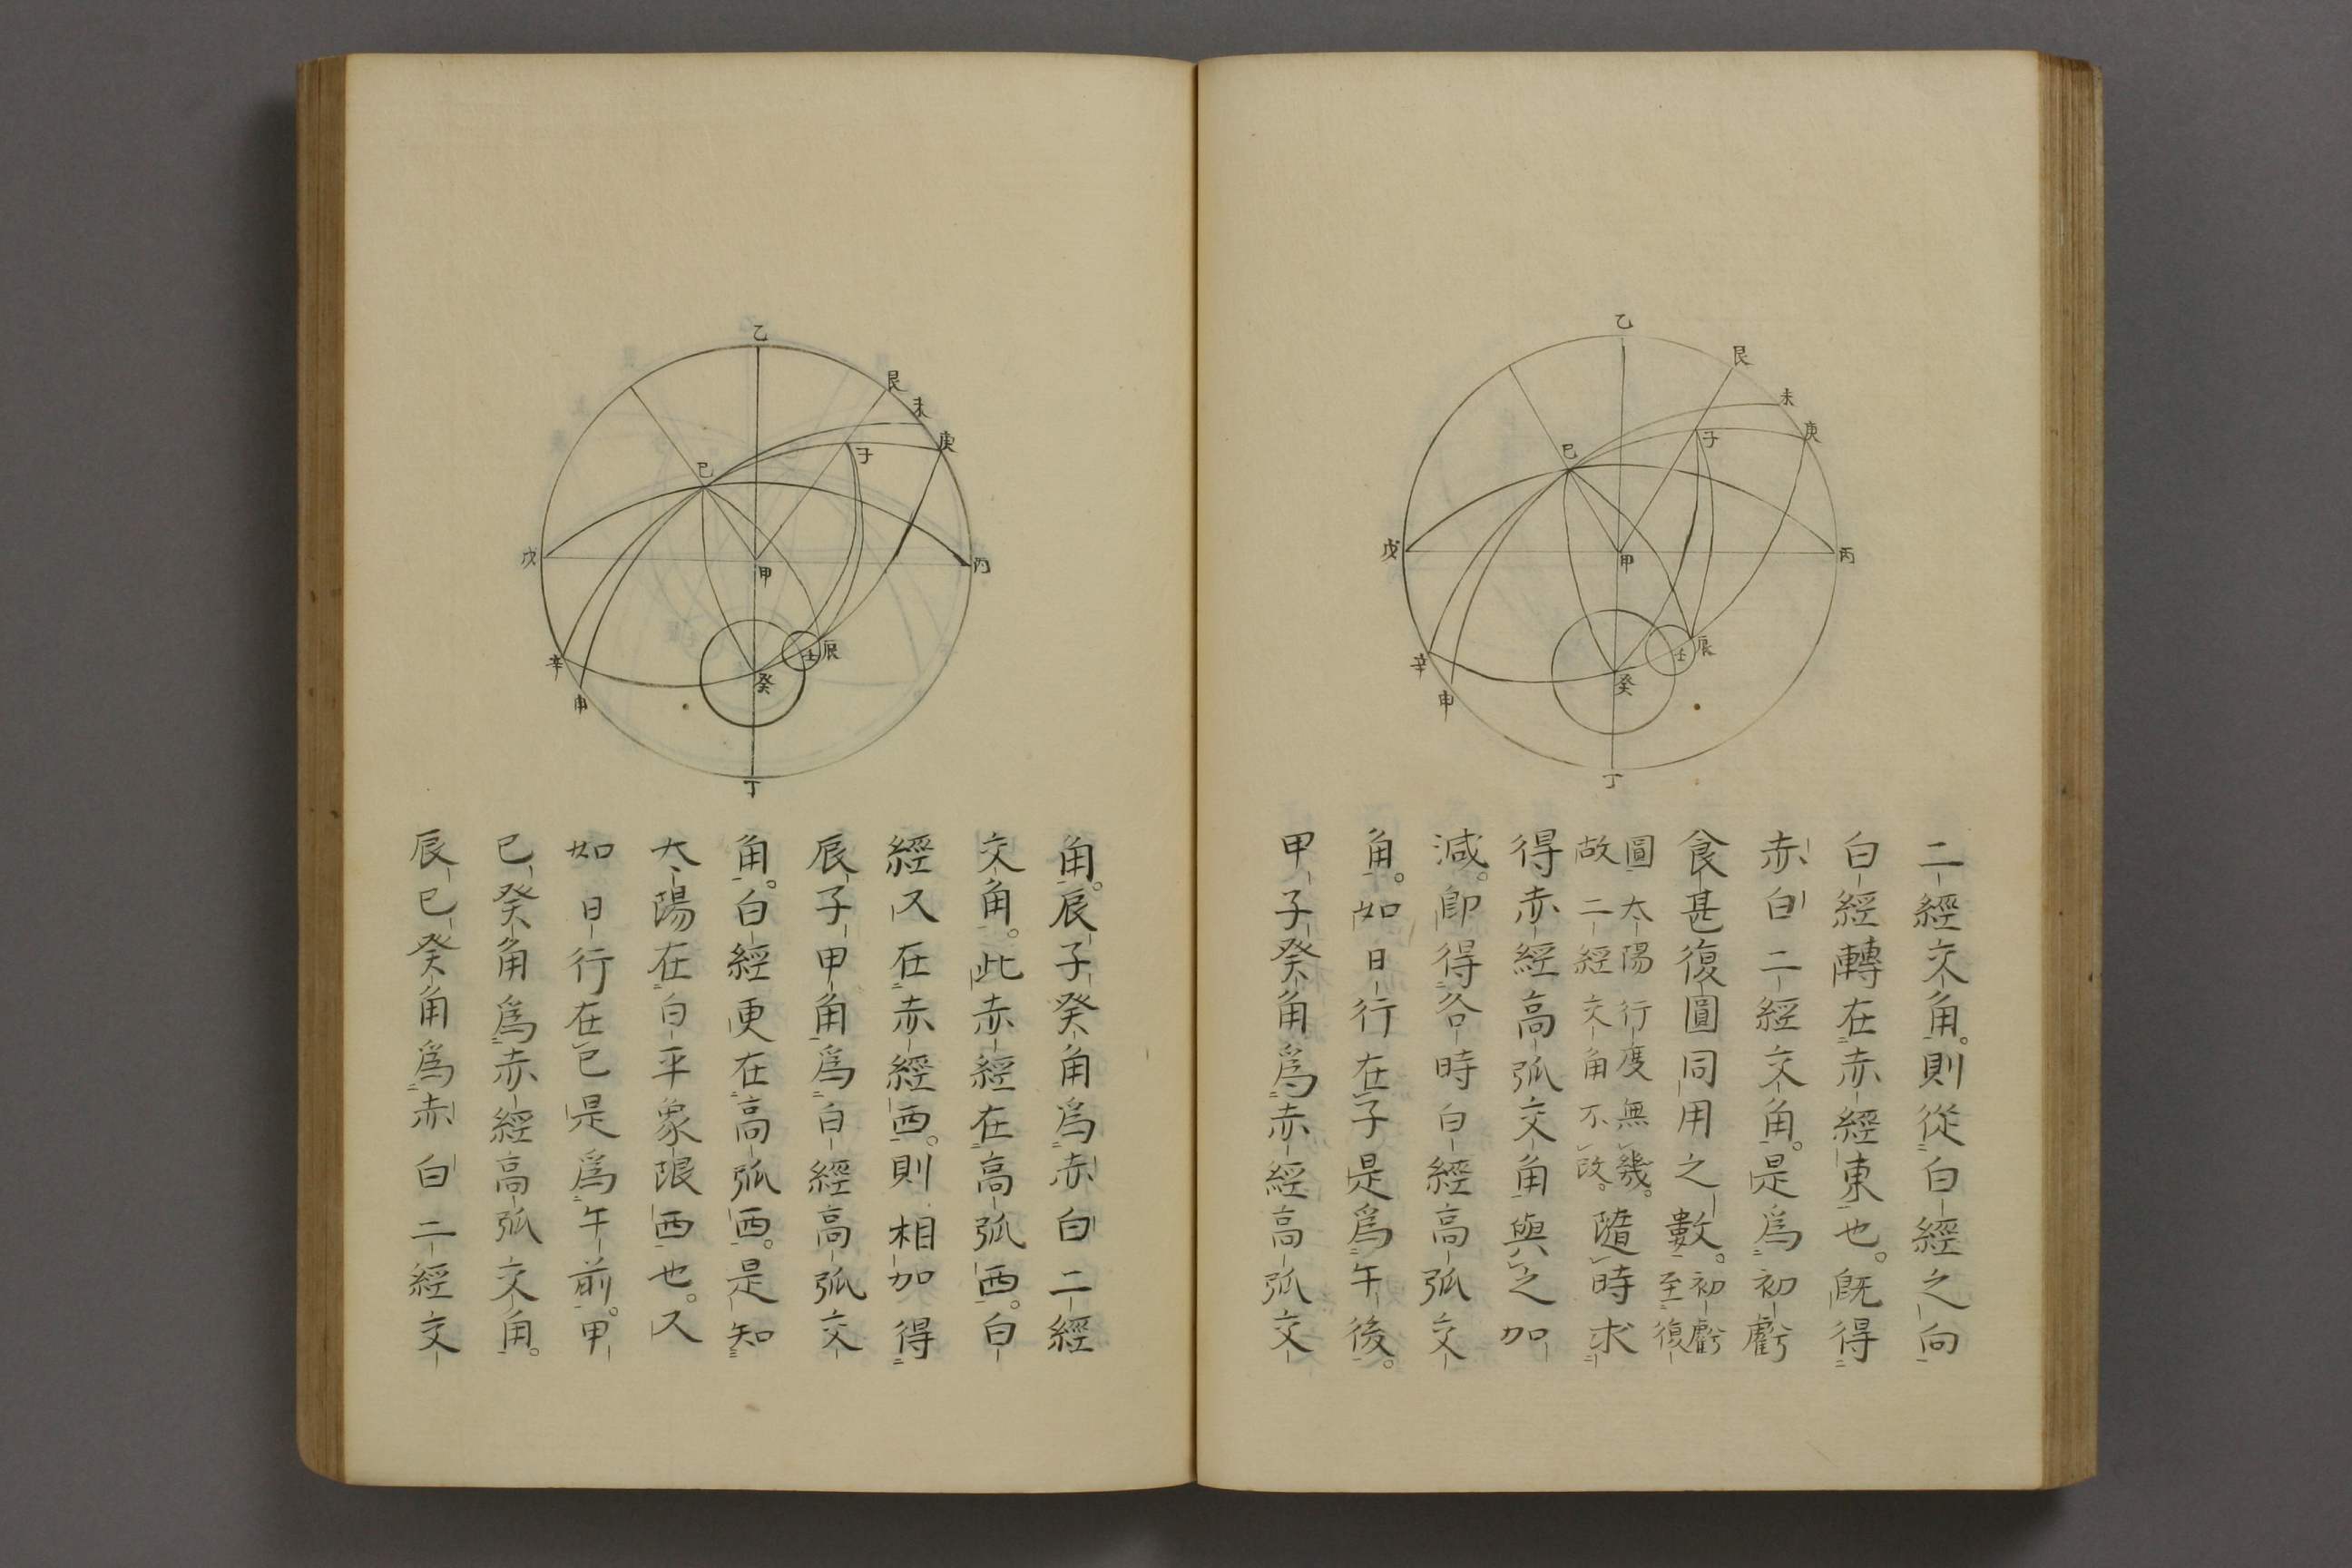 乙
艮
未
庚
子
巳
戊
甲
丙
辛
申
壬
辰
癸
丁
二經交角。則從白經之向
白經轉在赤經東也。既得
赤白二經交角。是爲初虧
食甚復圓同用之數。初虧至復
圓太陽行度無幾。故二經交角不改。隨時求
得赤經高弧交角與之加
減。卽得各時白經高弧交
角。如日行在子是爲午後。
甲子癸角爲赤經高弧交
乙
艮
未
庚
子
巳
戊
甲
丙
辛
申
壬
辰
癸
丁
角。辰子癸角爲赤白二經
交角。此赤經在高弧西。白
經又在赤經西。則相加得
辰子甲角爲白經高弧交
角。白經更在高弧西。是知
太陽在白平象限西也。又
如日行在巳是爲午前。甲
巳癸角爲赤經高弧交角。
辰巳癸角爲赤白二經交